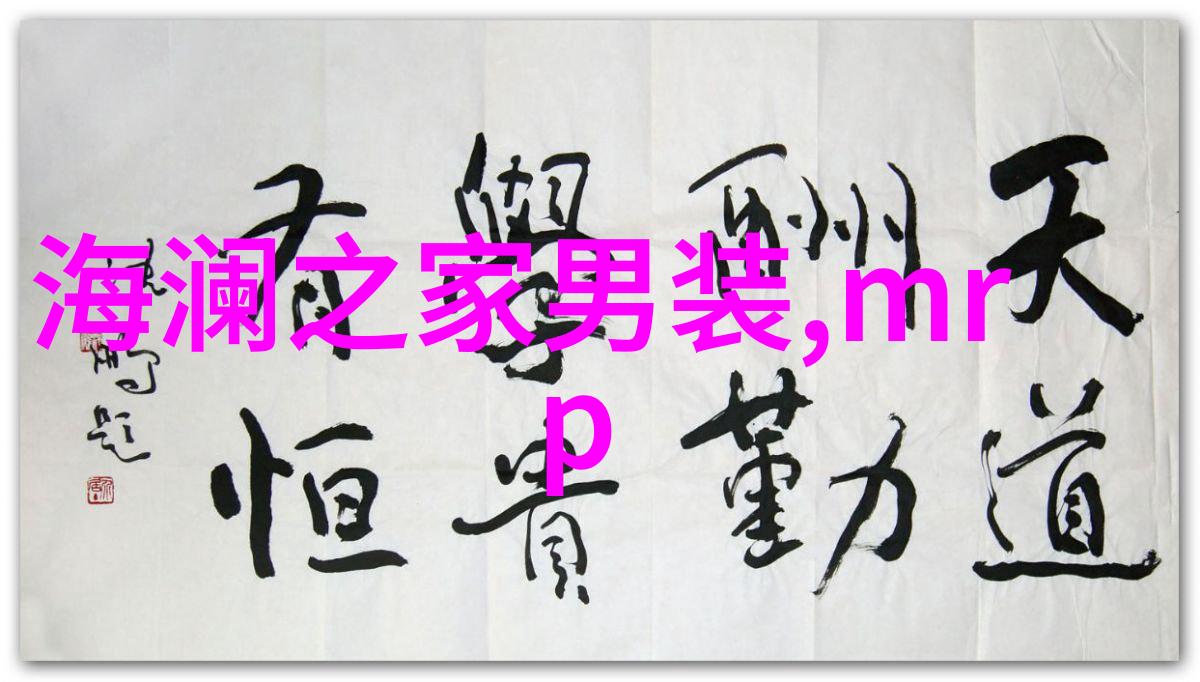 海澜之家男装,mr
p
天道
酬勤
學貴
有恒
鹏题